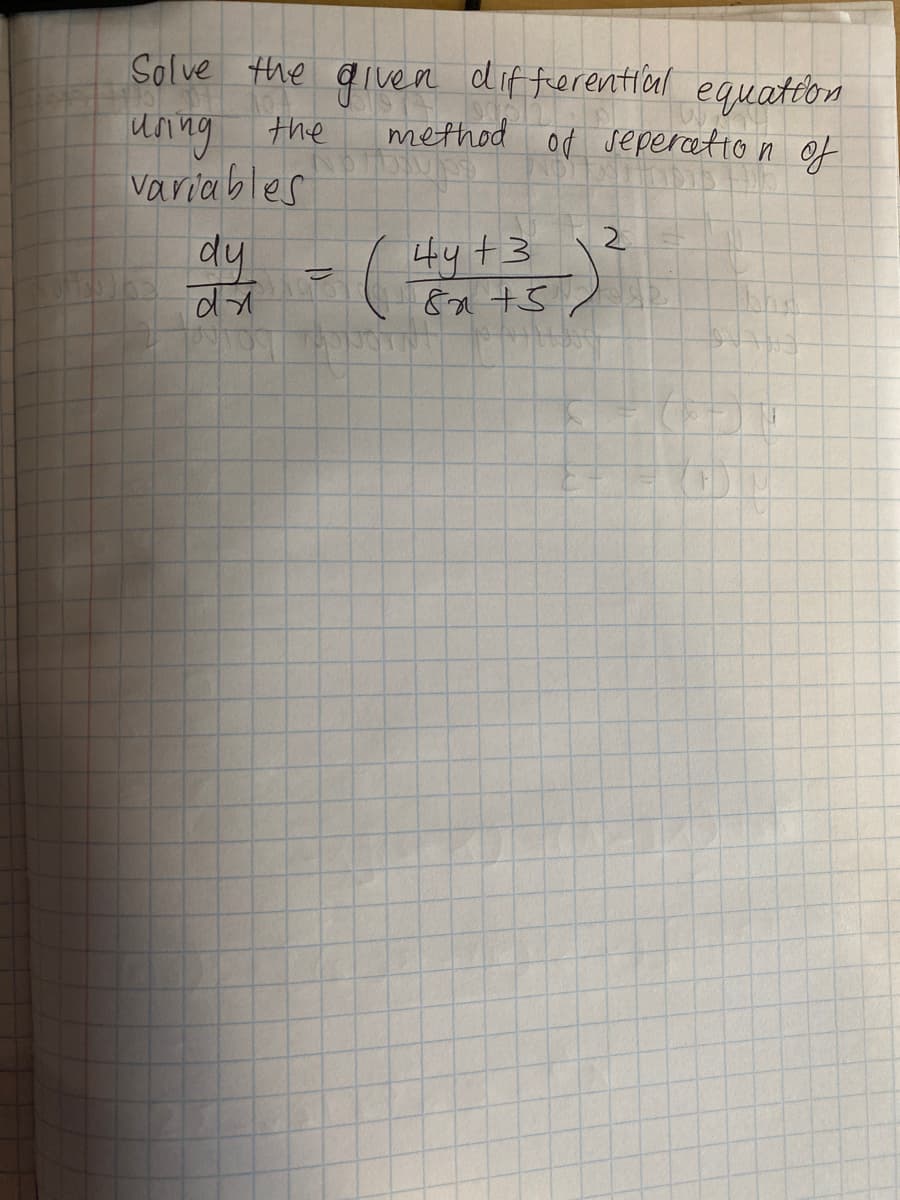 Solve the given differential equation
using the method of seperation of
variables
dy/dx = ( 4y + 3 / 8x + 5 )²